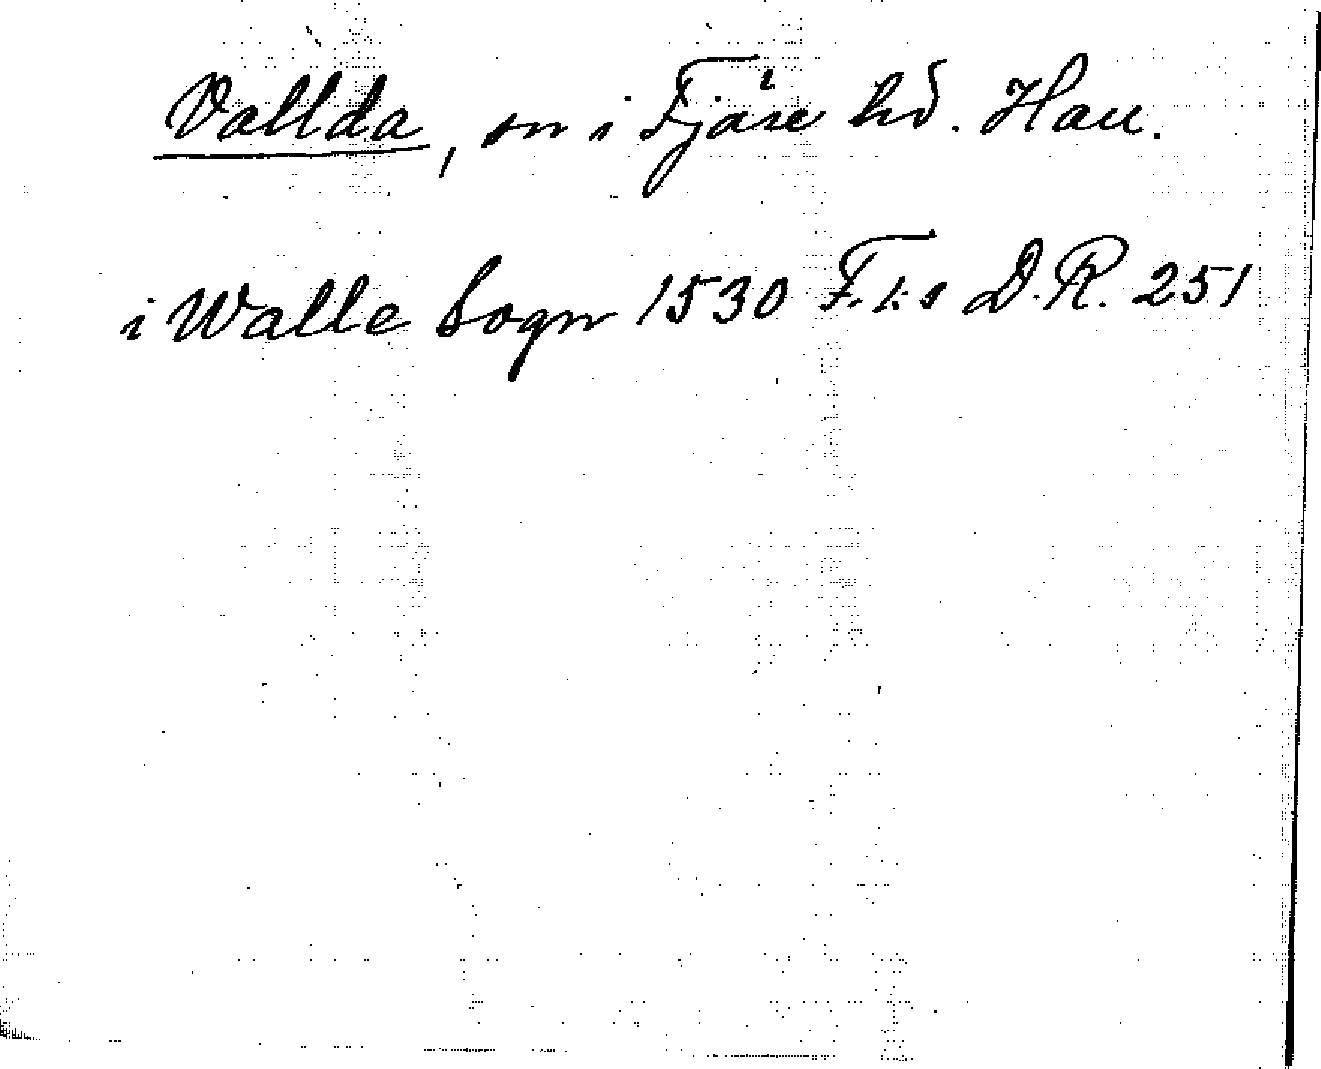 Vallda, sn i Fjäre hd. Hall.
i Walle Sogn 1530 F. I:s D.R. 251